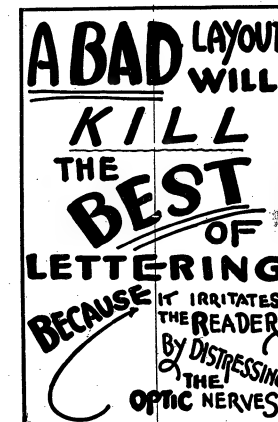 A BAD LAYOUT
WILL
KILL
THE
BEST
OF
LETTERING
BECAUSE IT IRRITATES
THE READER
BY DISTRESSING
THE
OPTIC NERVES